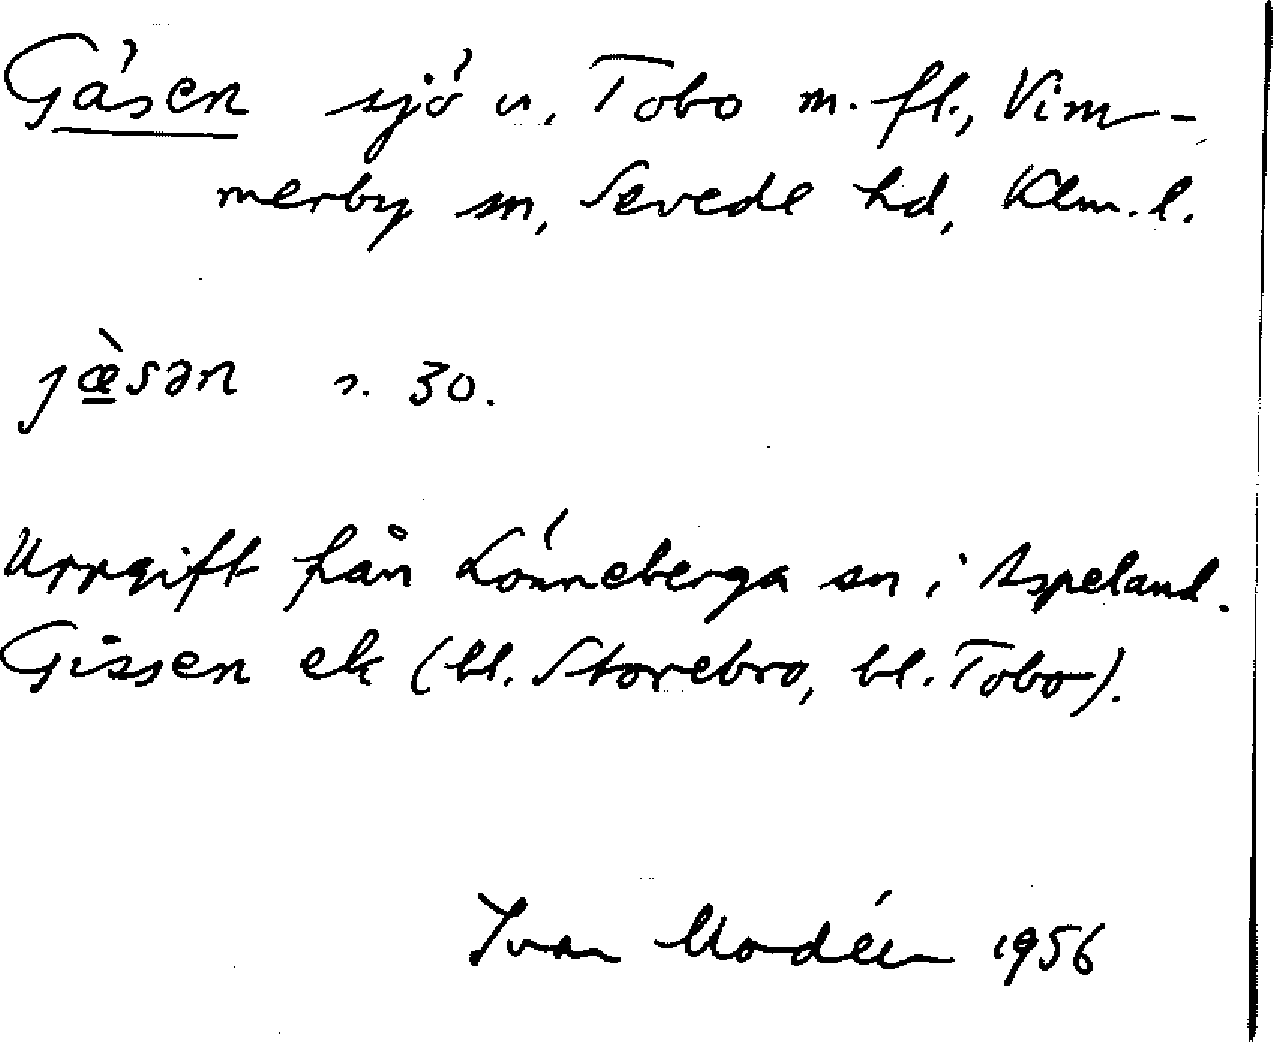 Gäsen sjö u. Tobo m. fl., Vim-
merby sn, Sevede hd, Klm. l.
jæ̀sən s. 30.
Uppgift från Lönneberga sn i Aspeland.
Gissen ek (bl. Storebro, bl. Tobo).
Ivar Modéer 1956